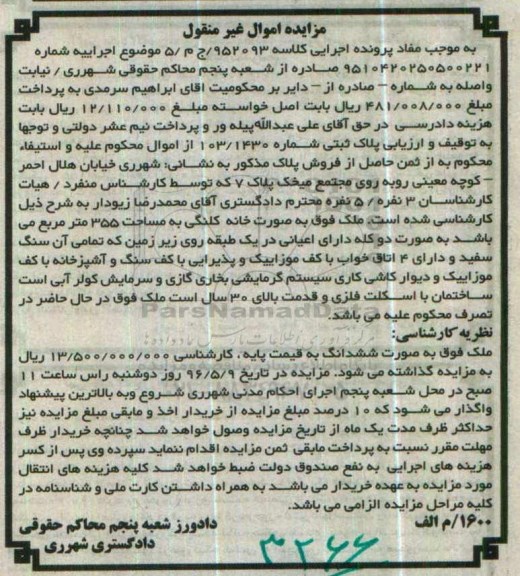 مزایده اموال غیر منقول
به موجب مفاد پرونده اجرایی کلاسه ۹۵۲۰۹۳/ج م /۵ موضوع اجراییه شماره
۹۵۱۰۴۲۰۲۵۰۵۰۰۲۲۱ صادره از شعبه پنجم محاکم حقوقی شهرری / نیابت
واصله به شماره – صادره از – دایر بر محکومیت اقای ابراهیم سرمدی به پرداخت
مبلغ ۴۸۱/۰۰۸/۰۰۰ ریال بابت اصل خواسته مبلغ ۱۲/۱۱۰/۰۰۰ ریال بابت
هزینه دادرسی در حق آقای علی عبدالله‌پیله ور و پرداخت نیم عشر دولتی و توجها
به توقیف و ارزیابی پلاک ثبتی شماره ۱۰۳/۱۴۳۰ از اموال محکوم علیه و استیفاء
محکوم به از ثمن حاصل از فروش پلاک مذکور به نشانی: شهرری خیابان هلال احمر
– کوچه معینی روبه روی مجتمع میخک پلاک ۷ که توسط کارشناس منفرد / هیات
کارشناسان ۳ نفره / ۵ نفره محترم دادگستری آقای محمدرضا زیودار به شرح ذیل
کارشناسی شده است. ملک فوق به صورت خانه کلنگی به مساحت ۳۵۵ متر مربع می
باشد به صورت دو کله دارای اعیانی در یک طبقه روی زیر زمین که تمامی آن سنگ
سفید و دارای ۴ اتاق خواب با کف موزاییک و پذیرایی با کف سنگ و آشپزخانه با کف
موزاییک و دیوار کاشی کاری سیستم گرمایشی بخاری گازی و سرمایش کولر آبی است
ساختمان با اسکلت فلزی و قدمت بالای ۳۰ سال است ملک فوق در حال حاضر در
تصرف محکوم علیه می باشد.
نظریه کارشناسی:
ملک فوق به صورت ششدانگ به قیمت پایه، کارشناسی ۱۳/۵۰۰/۰۰۰/۰۰۰ ریال
به مزایده گذاشته می شود. مزایده در تاریخ ۹۶/۵/۹ روز دوشنبه راس ساعت ۱۱
صبح در محل شعبه پنجم اجرای احکام مدنی شهرری شروع وبه بالاترین پیشنهاد
واگذار می شود که ۱۰ درصد مبلغ مزایده از خریدار اخذ و مابقی مبلغ مزایده نیز
حداکثر ظرف مدت یک ماه از تاریخ مزایده وصول خواهد شد چنانچه خریدار ظرف
مهلت مقرر نسبت به پرداخت مابقی ثمن مزایده اقدام ننماید سپرده وی پس از کسر
هزینه های اجرایی به نفع صندوق دولت ضبط خواهد شد کلیه هزینه های انتقال
مورد مزایده به عهده خریدار می باشد به همراه داشتن کارت ملی و شناسنامه در
کلیه مراحل مزایده الزامی می باشد.
۱۶۰۰/م الف
دادورز شعبه پنجم محاکم حقوقی
دادگستری شهرری
۳۲۶۶
ParsNamadData